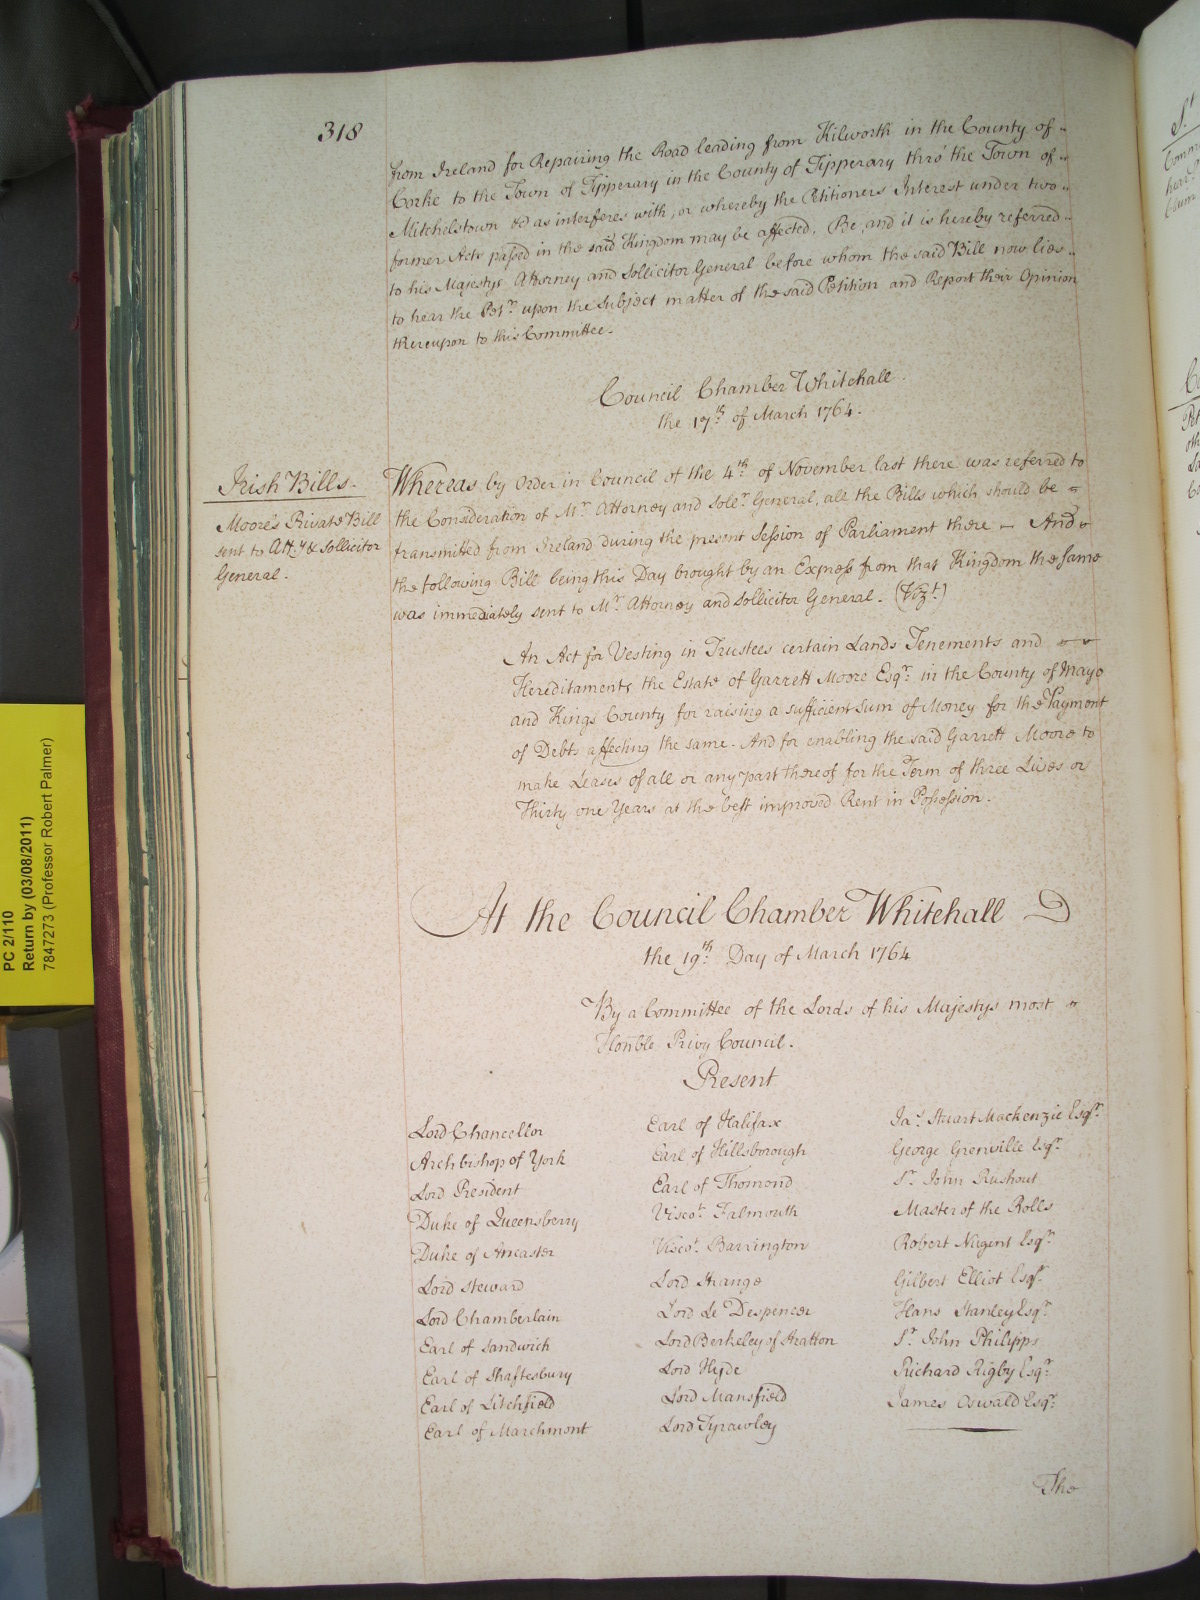 318
from Ireland for Repairing the Road leading from Kilworth in the County of
Corke to the Town of Tipperary in the County of Tipperary thro' the Town of
Mitchelstown &c as interferes with, or whereby the Petitioners Interest under two
former Acts passed in the said Kingdom may be affected, Be, and it is hereby referred
to his Majestys Attorney and Sollicitor General before whom the said Bill now lies
to hear the Petr. upon the Subject matter of the said Petition and Report their Opinion
thereupon to this Committee.
Council Chamber Whitehall.
the 17th. of March 1764.
Irish Bills.
Moore's Private Bill
sent to Atty & Sollicitor
General.
Whereas by Order in Council of the 4th of November last there was referred to
the Consideration of Mr. Attorney and Sollr. General, all the Bills which should be
transmitted from Ireland during the present Session of Parliament there — And
the following Bill being this Day brought by an Express from that Kingdom the same
was immediately sent to Mr. Attorney and Sollicitor General. (Vizt.)
An Act for Vesting in Trustees certain Lands Tenements and
Hereditaments the Estate of Garrett Moore Esqr. in the County of Mayo
and Kings County for raising a sufficient Sum of Money for the Payment
of Debts affecting the same. And for enabling the said Garrett Moore to
make Leases of all or any part thereof for the Term of three Lives or
Thirty one Years at the best improved Rent in Possession.
At the Council Chamber Whitehall
the 19th. Day of March 1764
By a Committee of the Lords of his Majestys most
Honble Privy Council.
Present
Lord Chancellor
Archbishop of York
Lord President
Duke of Queensberry
Duke of Ancaster
Lord Steward
Lord Chamberlain
Earl of Sandwich
Earl of Shaftesbury
Earl of Litchfield
Earl of Marchmont
Earl of Halifax
Earl of Hillsborough
Earl of Thomond
Viscot. Falmouth
Viscot. Barrington
Lord Strange
Lord Le Despencer
Lord Berkeley of Stratton
Lord Hyde
Lord Mansfield
Lord Tyrawley
Jas. Stuart Mackenzie Esqr.
George Grenville Esqr.
Sr. John Rushout
Master of the Rolls
Robert Nugent Esqr.
Gilbert Elliot Esqr.
Hans Stanley Esqr.
Sr. John Philipps
Richard Rigby Esqr.
James Oswald Esqr.
The
PC 2/110
Return by (03/08/2011)
7847273 (Professor Robert Palmer)